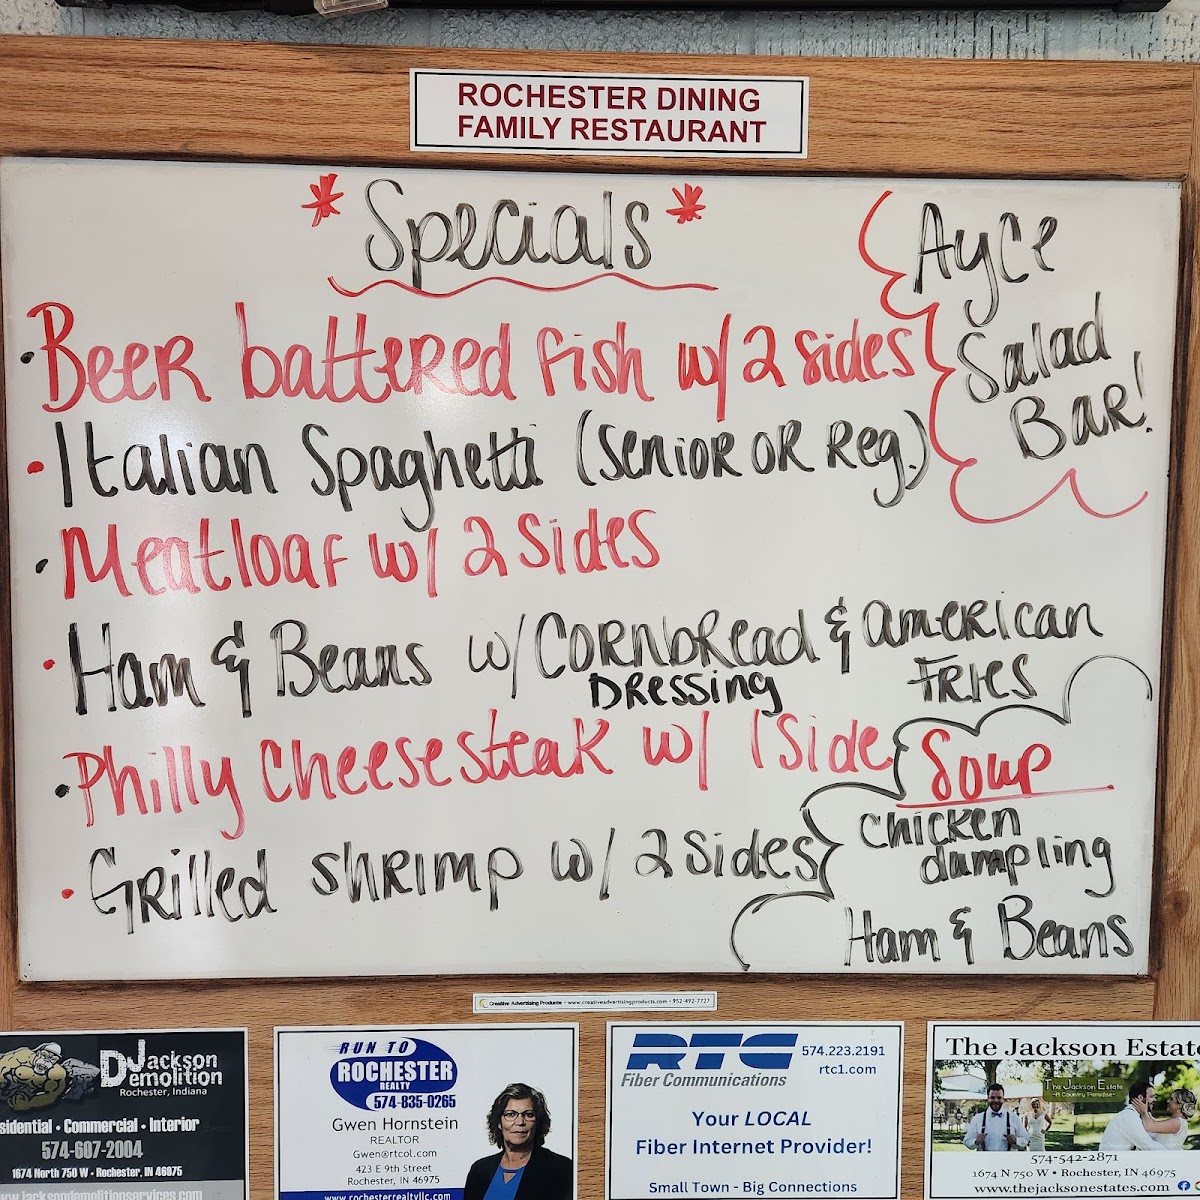 ROCHESTER DINING
FAMILY RESTAURANT
* Specials *
Ayce
Salad
Bar!
• Beer battered fish w/ 2 sides
• Italian Spaghetti (senior or Reg.)
• Meatloaf w/ 2 sides
• Ham & Beans w/ Cornbread & american
Dressing
Fries
• Philly Cheesesteak w/ 1 side
• Grilled shrimp w/ 2 sides
Soup
Chicken
dumpling
Ham & Beans
Creative Advertising Products • www.creativeadvertisingproducts.com • 952-492-7727
Jackson
Demolition
Rochester, Indiana
sidential • Commercial • Interior
574-607-2004
1674 North 750 W • Rochester, IN 46975
www.jacksondemolitionservices.com
RUN TO
ROCHESTER
REALTY
574-835-0265
Gwen Hornstein
REALTOR
Gwen@rtcol.com
423 E 9th Street
Rochester, IN 46975
www.rochesterrealtyllc.com
RTC
Fiber Communications
574.223.2191
rtc1.com
Your LOCAL
Fiber Internet Provider!
Small Town - Big Connections
The Jackson Estate
The Jackson Estate
~A Country Paradise~
574-542-2871
1674 N 750 W • Rochester, IN 46975
www.thejacksonestates.com